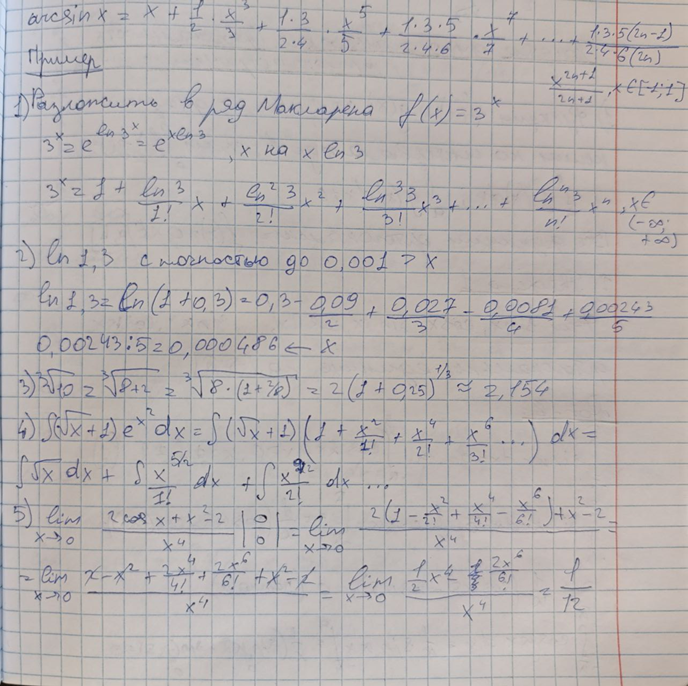 arcsin x = x + 1/2 · x^3/3 + 1·3/2·4 · x^5/5 + 1·3·5/2·4·6 · x^7/7 + ... + 1·3·5(2n-1)/2·4·6(2n)
x^(2n+1)/2n+1, x∈[-1;1]
Пример
1) Разложить в ряд Макларена f(x) = 3^x
3^x = e^(ln 3^x) = e^(x ln 3), x на x ln 3
3^x = 1 + ln 3/1! x + ln^2 3/2! x^2 + ln^3 3/3! x^3 + ... + ln^n 3/n! x^n, x∈ (-∞; +∞)
2) ln 1,3 с точностью до 0,001 > x
ln 1,3 = ln(1+0,3) = 0,3 - 0,09/2 + 0,027/3 - 0,0081/4 + 0,00243/5
0,00243:5 = 0,000486 ← x
3) ∛10 = ∛(8+2) = ∛(8·(1+2/8)) = 2(1+0,25)^(1/3) ≈ 2,154
4) ∫(√x+1) e^(x^2) dx = ∫(√x+1)(1 + x^2/1! + x^4/2! + x^6/3! ...) dx =
∫√x dx + ∫ x^(5/2)/1! dx + ∫ x^(9/2)/2! dx ...
5) lim x→0 2cos x + x^2 - 2/x^4 |0/0| = lim x→0 2(1 - x^2/2! + x^4/4! - x^6/6!) + x^2 - 2/x^4 =
= lim x→0 2 - x^2 + 2x^4/4! + 2x^6/6! + x^2 - 2/x^4 = lim x→0 1/2 x^4 - 2x^6/6!/x^4 = 1/12